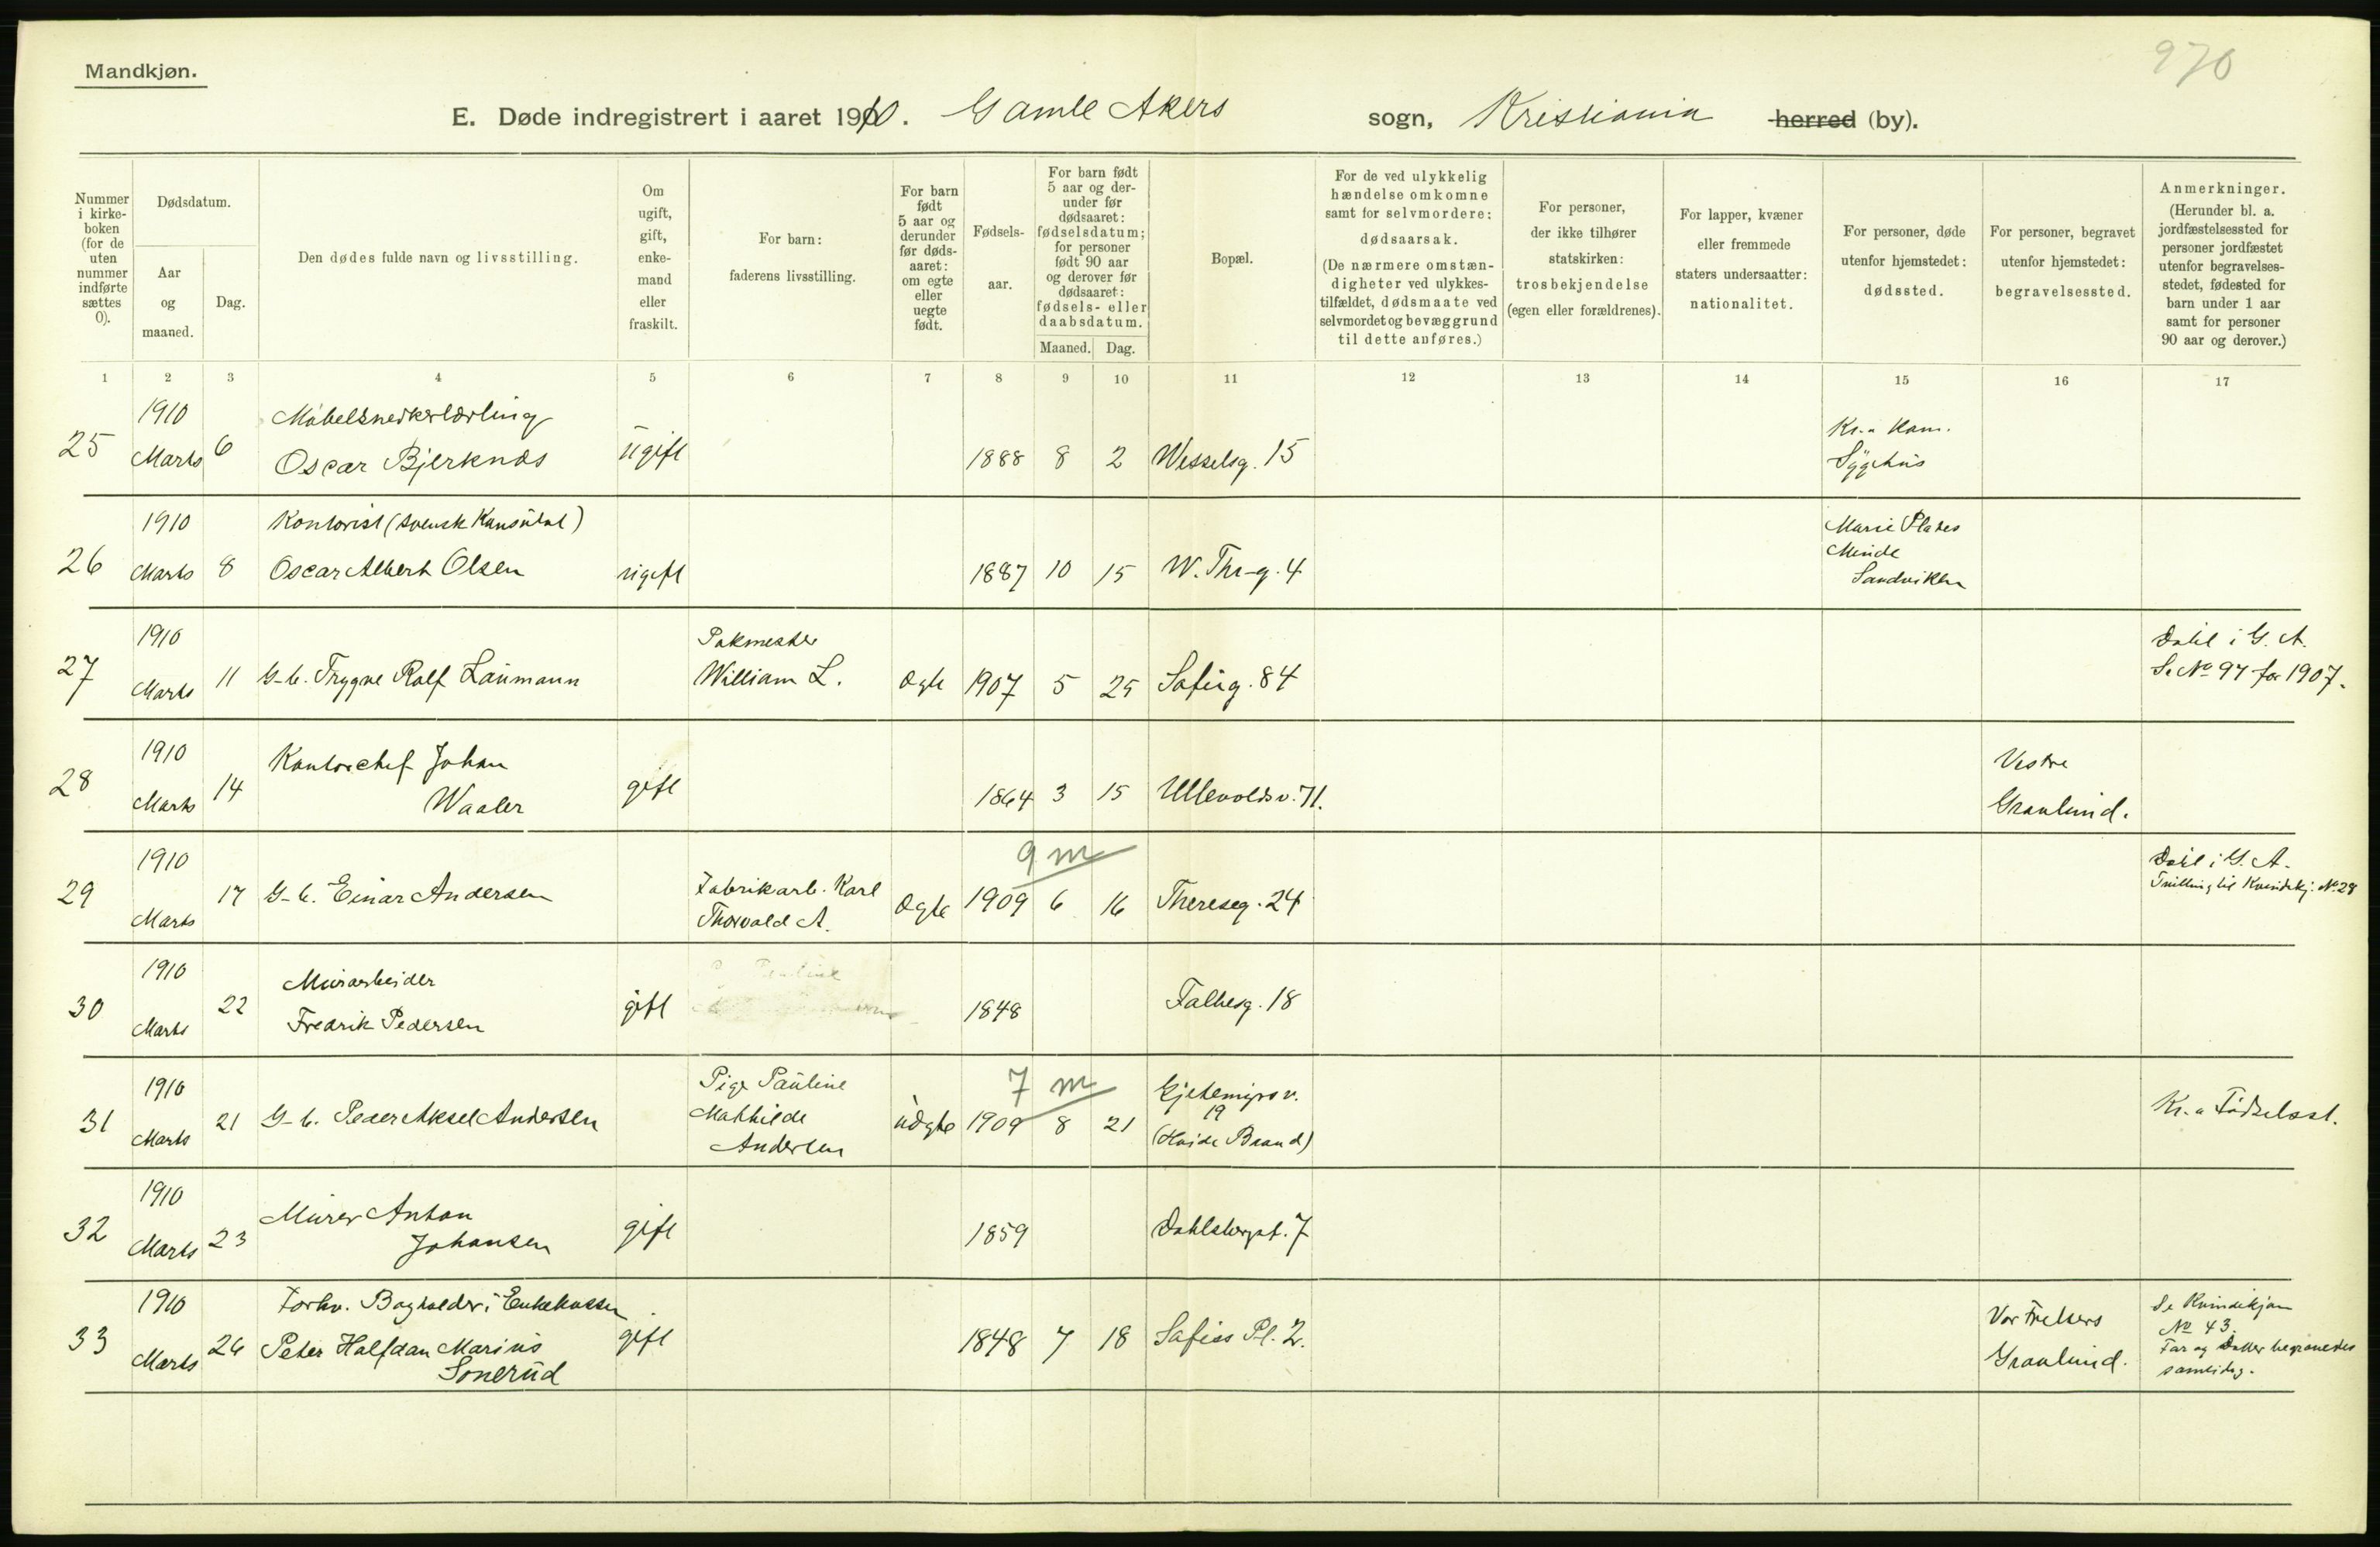 970
Mandkjøn.
E. Døde indregistrert i aaret 1910. Gamle Akers sogn, Kristiania herred (by).
Nummer i kirke- boken (for de uten nummer indførte sættes 0).
Dødsdatum.
Aar og maaned.
Dag.
Den dødes fulde navn og livsstilling.
Om ugift, gift, enke- mand eller fraskilt.
For barn: faderens livsstilling.
For barn født 5 aar og derunder før døds- aaret: om egte eller uegte født.
Fødsels- aar.
For barn født 5 aar og der- under før dødsaaret: fødselsdatum; for personer født 90 aar og derover før dødsaaret: fødsels- eller daabsdatum.
Maaned. Dag.
Bopæl.
For de ved ulykkelig hændelse omkomne samt for selvmordere: dødsaarsak. (De nærmere omstæn- digheter ved ulykkes- tilfældet, dødsmaate ved selvmordet og bevæggrund til dette anføres.)
For personer, der ikke tilhører statskirken: trosbekjendelse (egen eller forældrenes).
For lapper, kvæner eller fremmede staters undersaatter: nationalitet.
For personer, døde utenfor hjemstedet: dødssted.
For personer, begravet utenfor hjemstedet: begravelsessted.
Anmerkninger. (Herunder bl. a. jordfæstelsessted for personer jordfæstet utenfor begravelses- stedet, fødested for barn under 1 aar samt for personer 90 aar og derover.)
1 2 3 4 5 6 7 8 9 10 11 12 13 14 15 16 17
1910 Møbelsnedkerlærling Kr.a Kom.
25 Marts 6 Oscar Bjerknæs ugift 1888 8 2 Wesselsg. 15 Sygehus
1910 Kontorist (svensk Konsulat) Marie Plates
Minde
26 Marts 8 Oscar Albert Olsen ugift 1887 10 15 W. Thr-g. 4 Sandviken
1910 Pakmester Døbt i G. A.
27 Marts 11 G-b. Trygve Rolf Laumann William L. ægte 1907 5 25 Sofieg. 84 Se No 97 for 1907.
1910 Kontorchef Johan Vestre
28 Marts 14 Waaler gift 1864 3 15 Ullevoldsv. 71. Gravlund.
1910 9 m Døbt i G. A.
29 Marts 17 G-b. Einar Andersen Fabrikarb. Karl ægte 1909 6 16 Thereseg. 24 Tvilling til Kvindekj. No 28
Thorvald A.
1910 Murarbeider
30 Marts 22 Fredrik Pedersen gift 1848 Falbesg. 18
1910 Pige Pauline 7 m Gjetemyrsv.
31 Marts 21 G-b. Peder Aksel Andersen Mathilde uægte 1909 8 21 19 Kr.a Fødselsst.
Andersen (Hvide Baand)
1910 Murer Anton
32 Marts 23 Johansen gift 1859 Dahlsbergst. 7
1910 Forhv. Bogholder i Enkekassen Vor Frelsers Se Kvindekjøn
No 43.
33 Marts 26 Peter Halfdan Marius gift 1848 7 18 Sofies Pl. 2. Gravlund. Far og Datter begravedes
Sonerud samtidig.